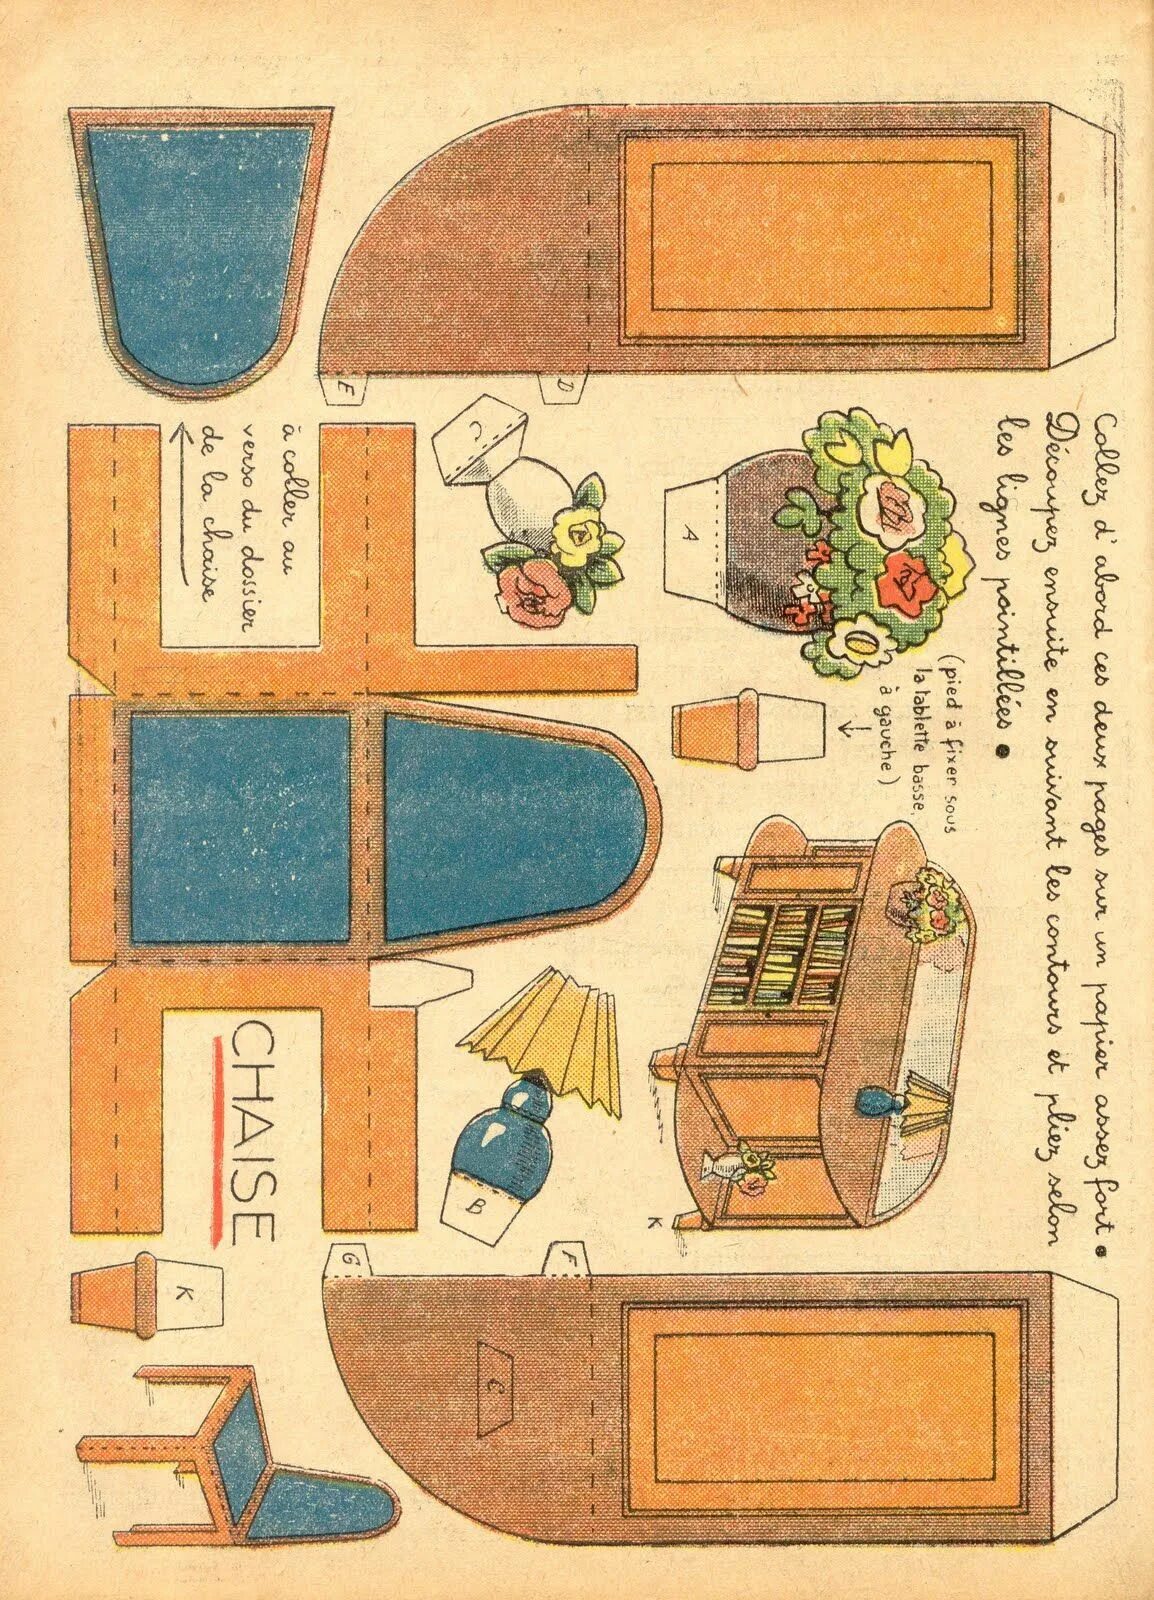 Collez d'abord ces deux pages sur un papier assez fort •
Découpez ensuite en suivant les contours et pliez selon
les lignes pointillées •
(pied à fixer sous
la tablette basse,
à gauche)
A
C
D
E
à coller au
verso du dossier
de la chaise
CHAISE
B
K
K
F
G
C